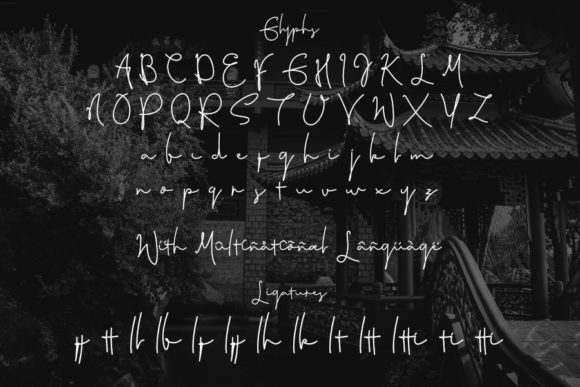 Glyphs
A B C D E F G H I J K L M
N O P Q R S T U V W X Y Z
a b c d e f g h i j k l m
n o p q r s t u v w x y z
With Multinational Language
Ligatures
pp tt ll lb lp lpp lh lk lt ltt ltti ti tti